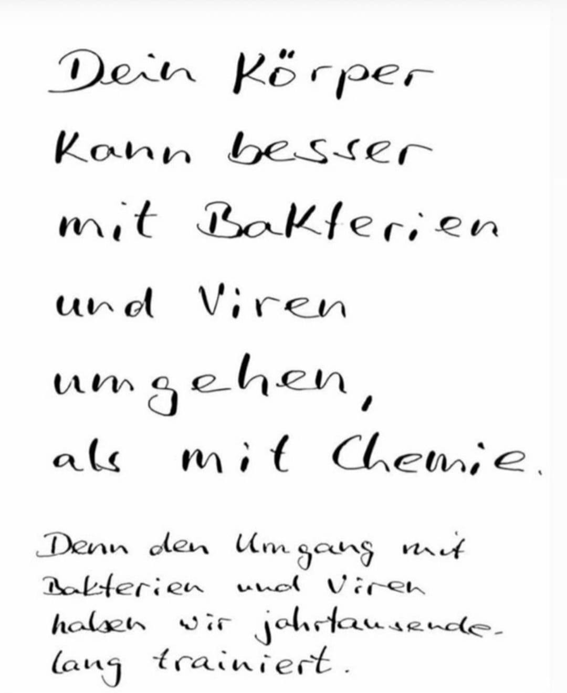 Dein Körper
kann besser
mit Bakterien
und Viren
umgehen,
als mit Chemie.
Denn den Umgang mit
Bakterien und Viren
haben wir jahrtausende-
lang trainiert.